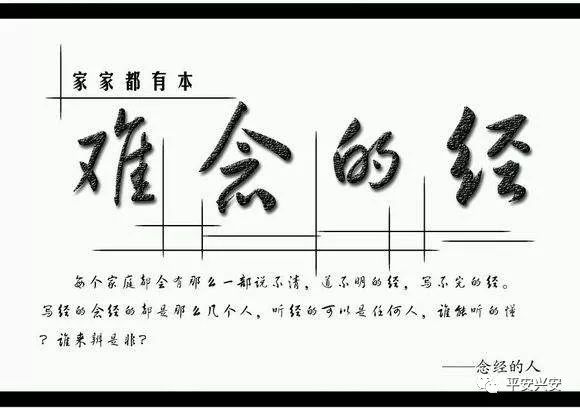 家家都有本
难念的经
每个家庭都会有那么一部说不清，道不明的经，写不完的经。
写经的念经的都是那么几个人，听经的可以是任何人，谁能听的懂
？谁来辨是非？
——念经的人
平安兴安